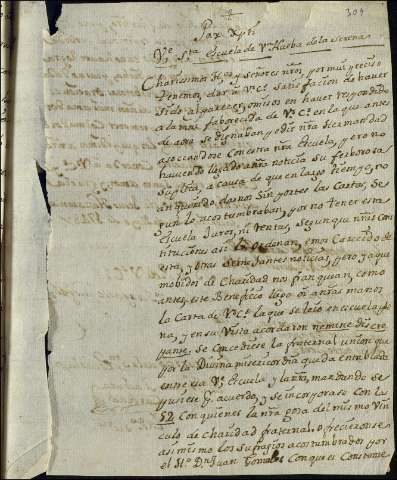 304
Pax Xpti
Ve. Sta. escuela de Va.
Charissimos Hos. y señores nros. por muy preciso
tenemos, dar a Vs. Cs. Satisfacion de haver
sido al parecer omisos en haver respondido
a la mas faborecida de Vs. Cs. en la que antes
de aora se dignaban pedir nra. Hermandad
asociandose con esta nra. Escuela, pero no
haviendo llegado noticia su ferborosa
suplica, a causa de que en largo tiempo, no
an querido darnos sin portes las Cartas, Se
gun lo acostumbraban, y por no tener esta
escuela Juros, ni Rentas, Segun que nras. Cons
tituciones asi lo ordenan, emos Carecido de
esta, y otras Semejantes noticias, pero ya que
mobidos de Charidad nos franquian, como
antes, este Beneficio, llego a nras. manos
la Carta de Vs. Cs. la que se leio en escuela ple
na, y en su Vista acordaron nemine discre
pante, se Concediese la fraternal union, que
por la Divina misericordia queda entablada
entre esa Ve. Escuela y la nra. mandando se
pusiese pr. acuerdo, y se incorporase con las
52 Con quienes la nra. goza del mismo Vin
culo de charidad fraternal, ofreciendose
asimismo los Sufragios acostumbrados por
el Hо. Dn. Juan Gonzales Con que el Constante